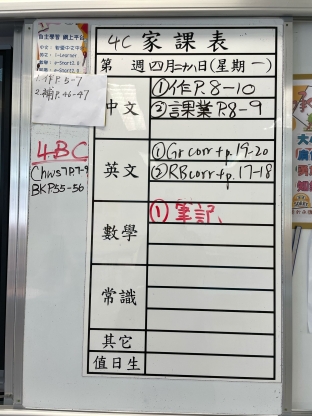 4C 家課表
第 週 四月二十八日(星期一)
中文
①作P.8-10
②課業P.8-9
英文
①Gr corr + p.19-20
②RB corr + p.17-18
數學
①筆記
常識
其它
值日生
自主學習 網上平台
1.作P.5-7
2.補P.46-47
4BC
Chws7P.7-9
BKP55-56